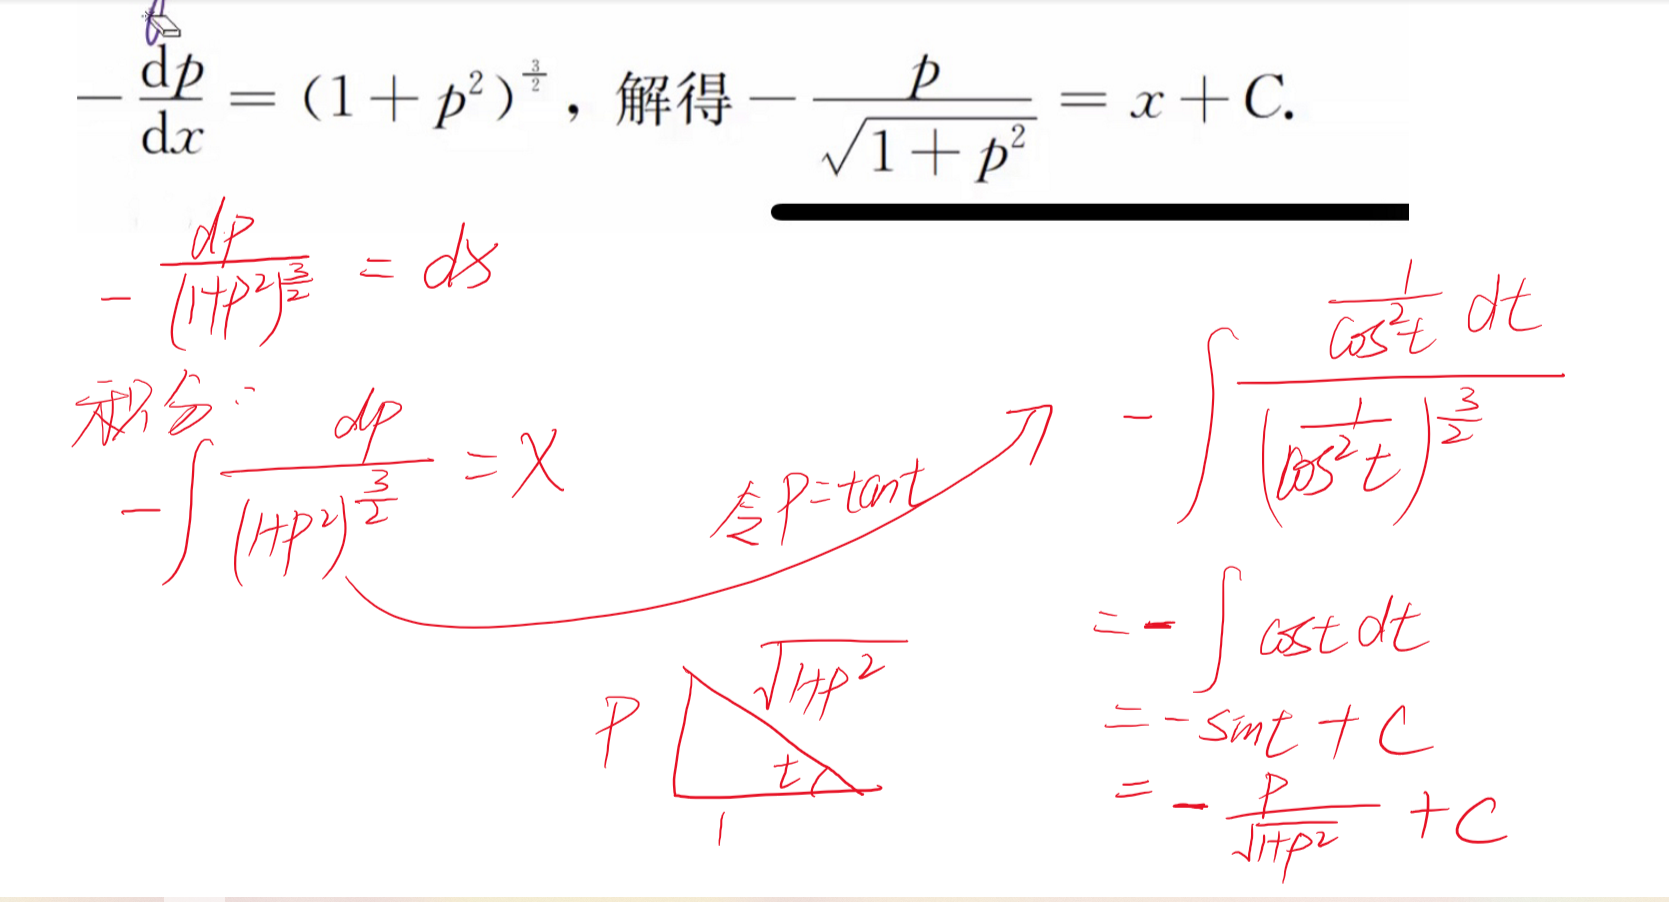 −dp/dx = (1 + p²)^(3/2), 解得 − p/√(1 + p²) = x + C.
− dp/(1+p²)^(3/2) = dx
积分:
−∫ dp/(1+p²)^(3/2) = x
令 p = tant
p
√(1+p²)
t
1
−∫ (1/cos²t dt)/(1/cos²t)^(3/2)
= −∫ cost dt
= − sint + C
= − p/√(1+p²) + C